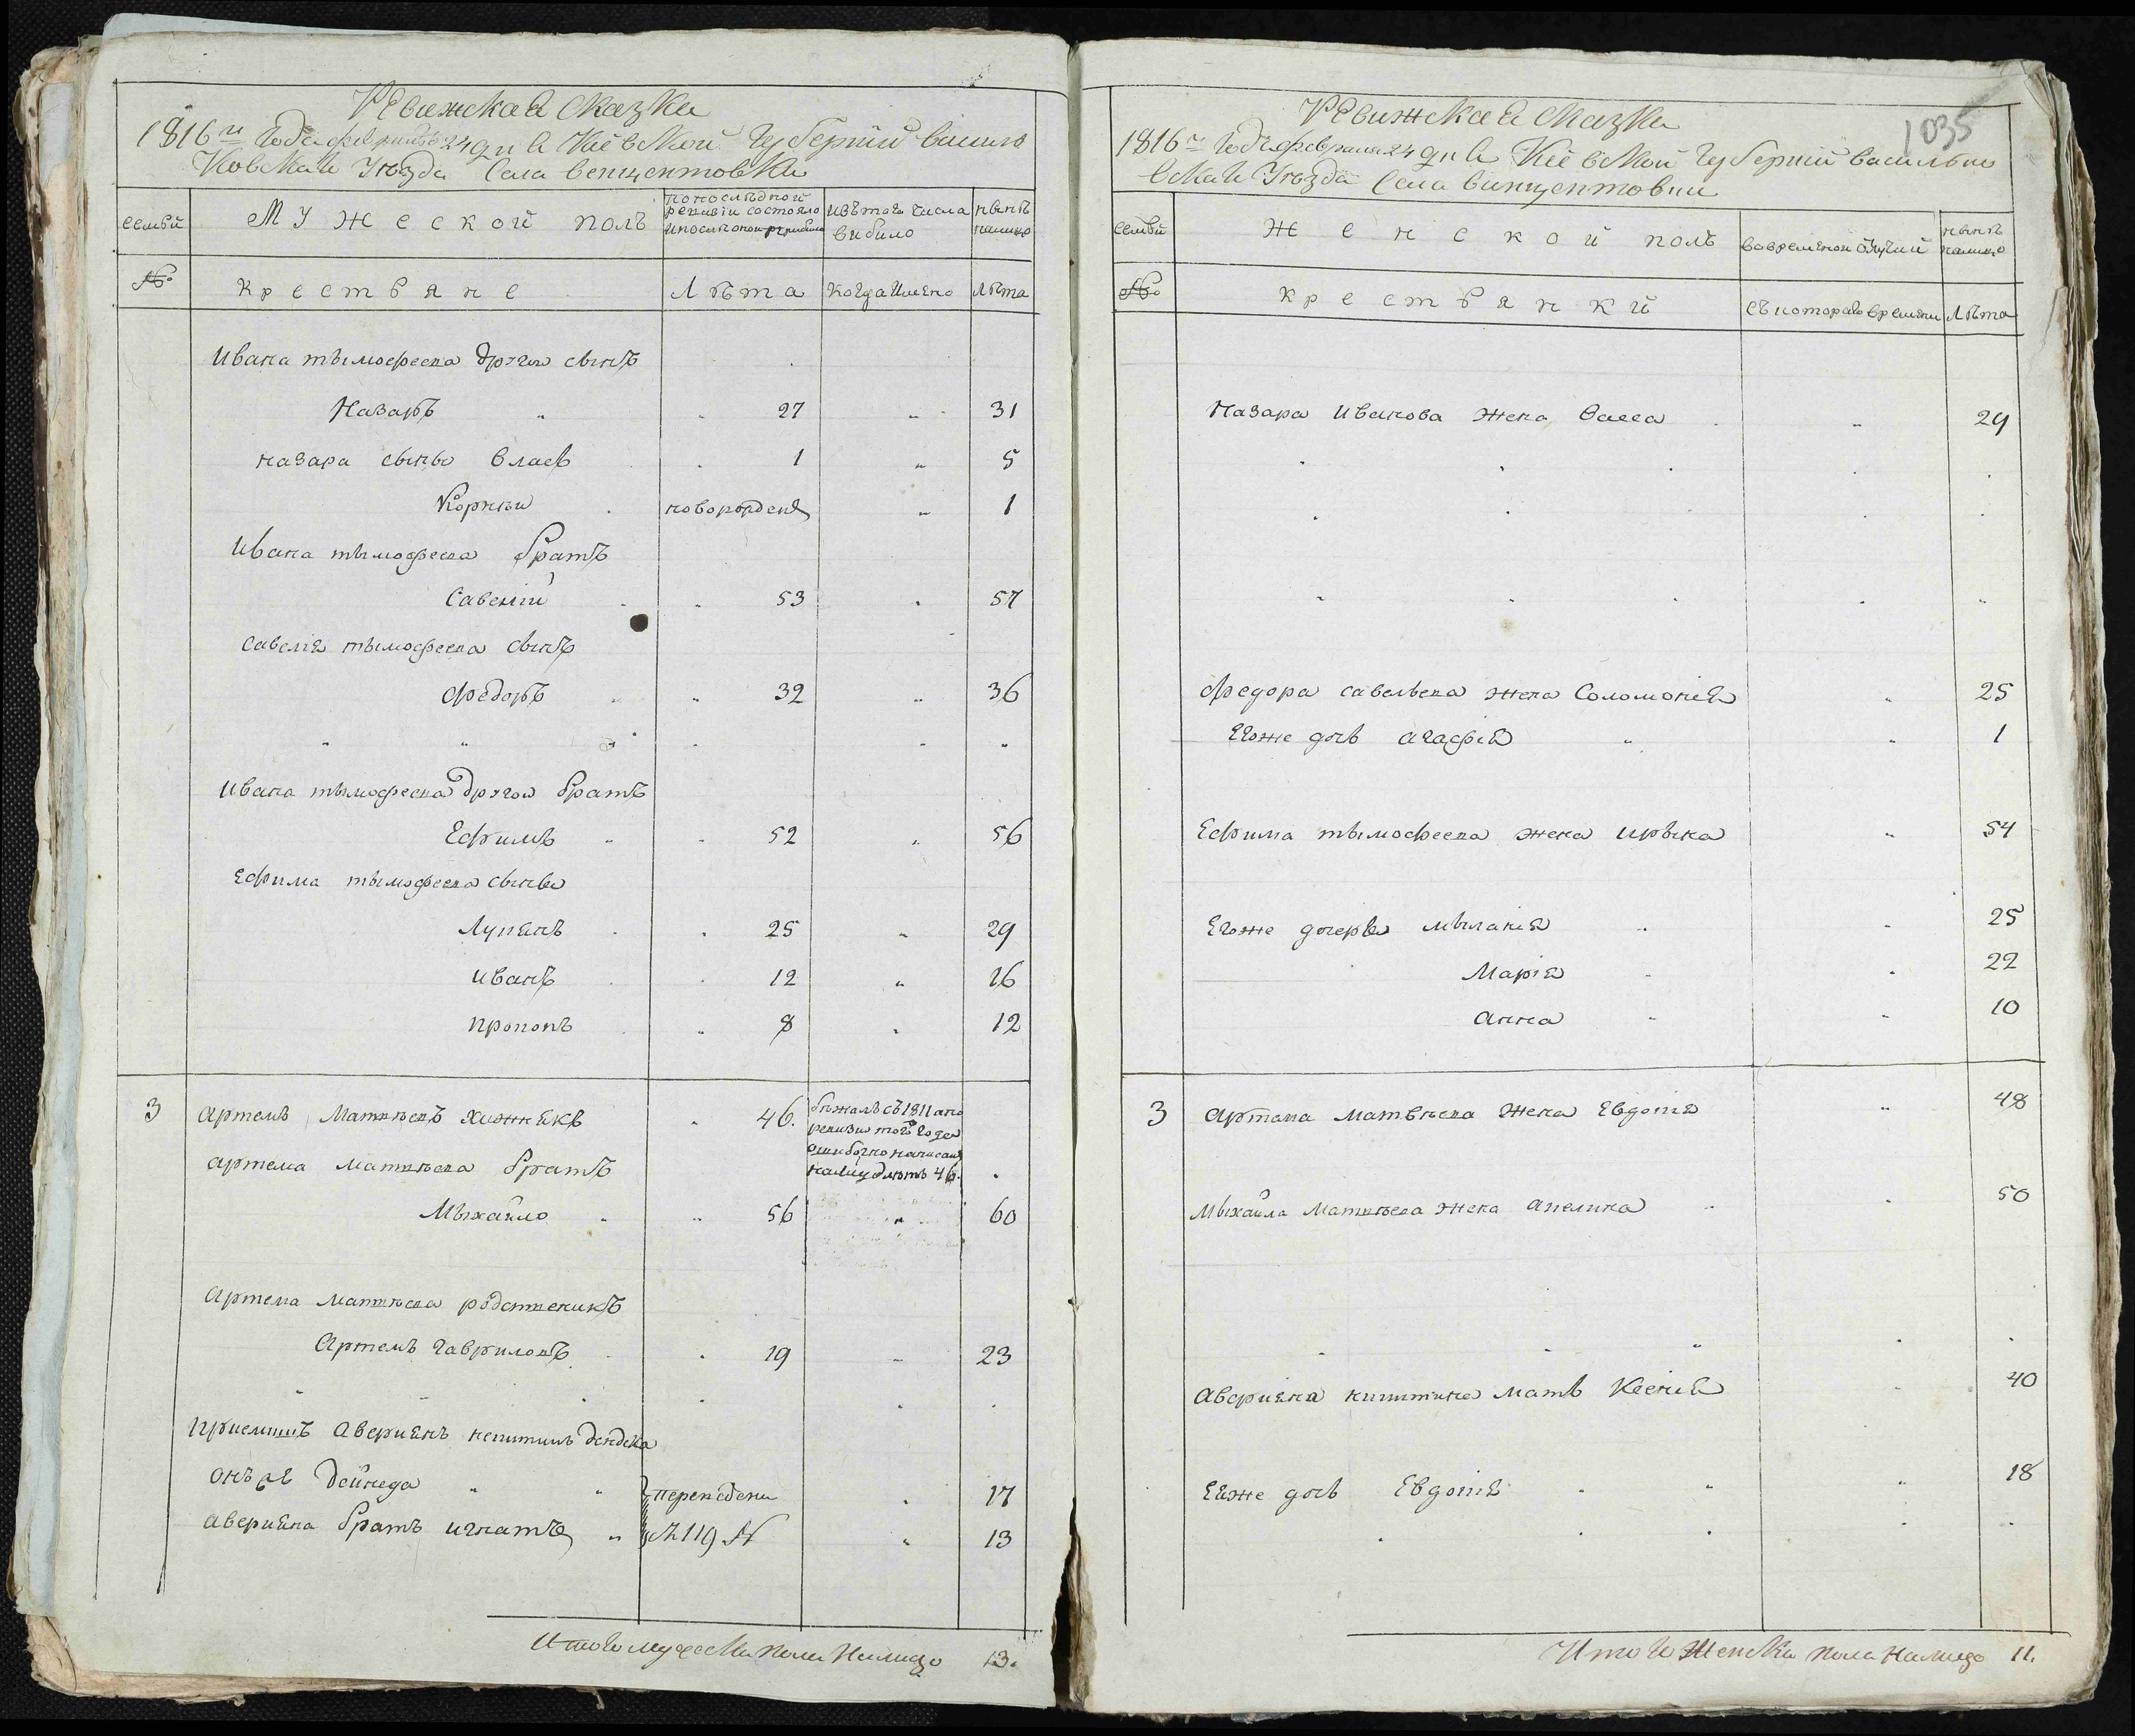 Ревижская Сказка
1816го Года февраля 24 дня Кіевской Губернии василь
ковскаго Уезда Села венцентовки
семьи
Мужеской полъ
По последной ревизіи состояло и после оной прибыло
Изъ того числа выбыло
ныне налицо
№
крестьяне
Лѣта
Когда Имено
лѣта
Ивана тымофеева другои сынъ
Назаръ 27 31
назара сыны власъ 1 5
Корнеи новорожденъ 1
Ивана тымофеева братъ
Савелій 53 57
Савелія тымофеева сынъ
Федоръ 32 36
Ивана тымофеева другои братъ
Ефимъ 52 56
Ефима тымофеева сыны
Лупянъ 25 29
Иванъ 12 16
Прокопъ 8 12
3 Артемъ Матвѣевъ хижнякъ 46. бежалъ съ 1811 а по
ревизіи того года
ошибочно написанъ
налицо лѣтъ 46.
Артема матвѣева братъ
Мыхайло 56 60
Артема матвѣева родственикъ
Артемъ гавриловъ 19 23
приемышъ Аверіянъ никитинъ
онъ же Дейнеда переведени 17
Аверияна братъ игнатъ съ 119 № 13
Итого мужеска пола Налицо 13.
1035
Ревижская Сказка
1816го Года февраля 24 дня Кіевской Губерніи василько
вскаго Уезда Села винцентовки
семьи
Женской полъ
Во временой отлучки
ныне налицо
№
крестьянки
Съ котораго времяни
Лѣта
Назара Иванова жена Васса 29
Федора савельева жена Соломонія 25
Егоже дочь агафія 1
Ефима тымофеева жена ирына 54
Егоже дочеры мыланія 25
Марія 22
анна 10
3 Артема матвѣева жена Евдокія 48
Мыхайла Матвѣева жена анелина 50
Аверияна никитина мать Ксенія 40
Еяже дочь Евдокія 18
Итого Женска пола Налицо 11.